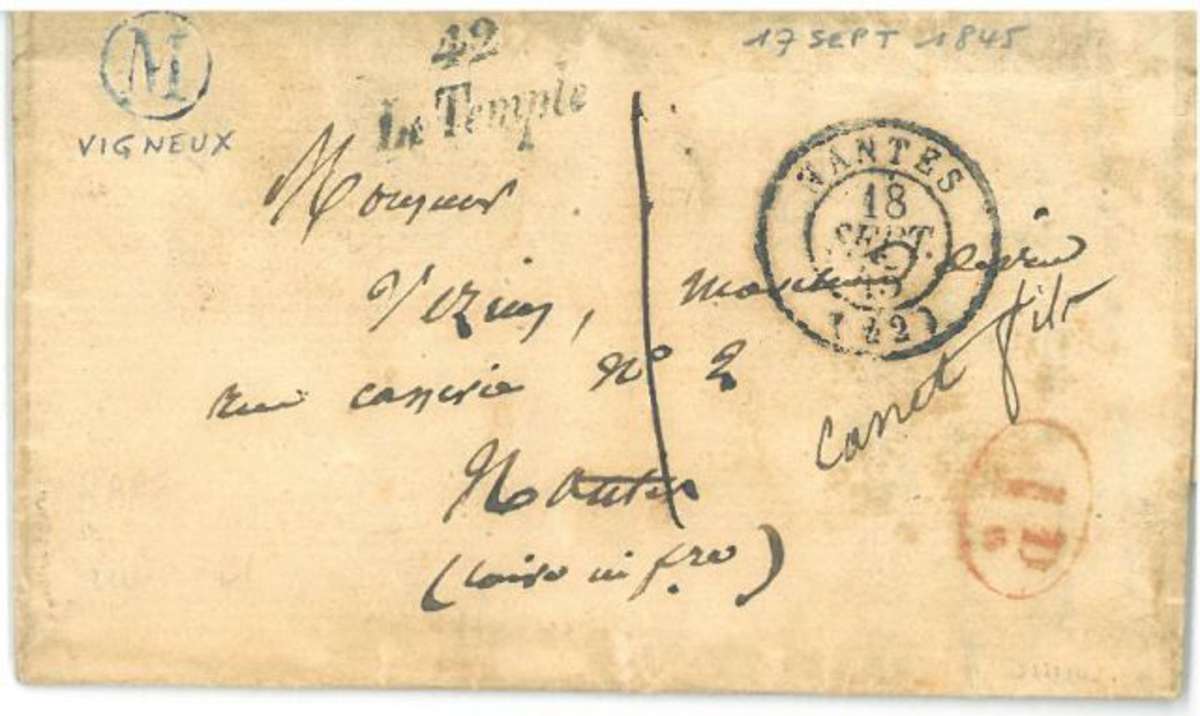 M
VIGNEUX
42
Le Temple
17 SEPT 1845
NANTES
18
SEPT.
45
(42)
Monsieur
Vezin,
rue casserie N° 2
Nantes
(loire infre)
Carret fils
1D